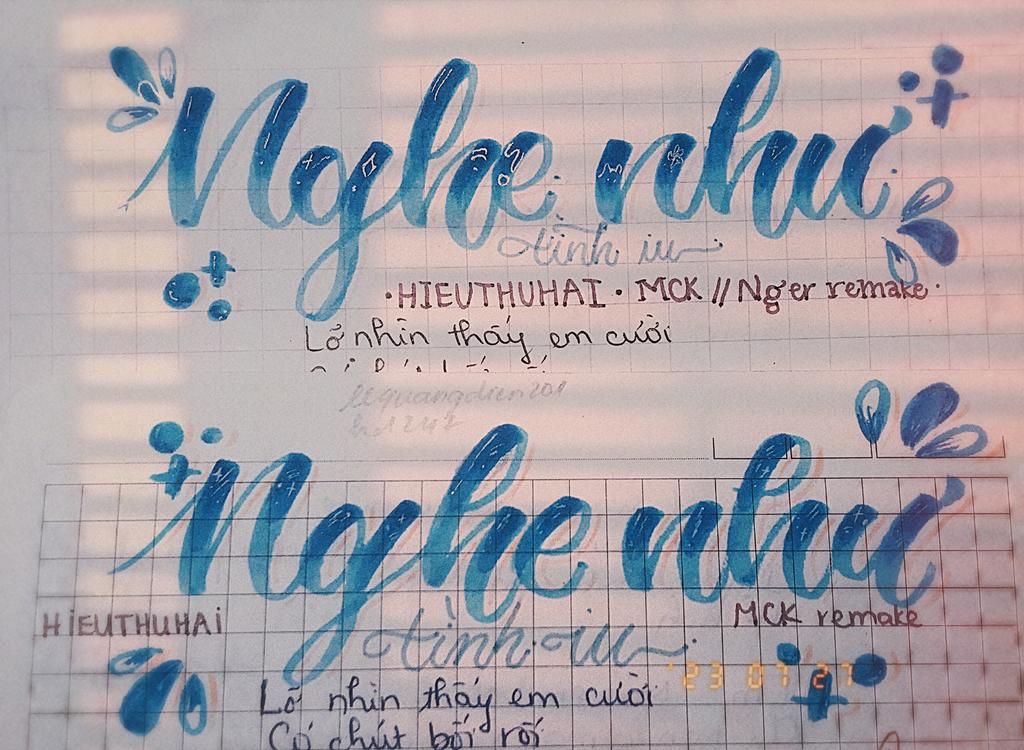 Nghe như
tình iu
·HIEUTHUHAI· MCK // Nger remake·
Lỡ nhìn thấy em cười
lequangdien201
Nghe như
HiEUTHUHAi
MCK remake
tình iu
'23 07 27
Lỡ nhìn thấy em cười
Có chút bối rối